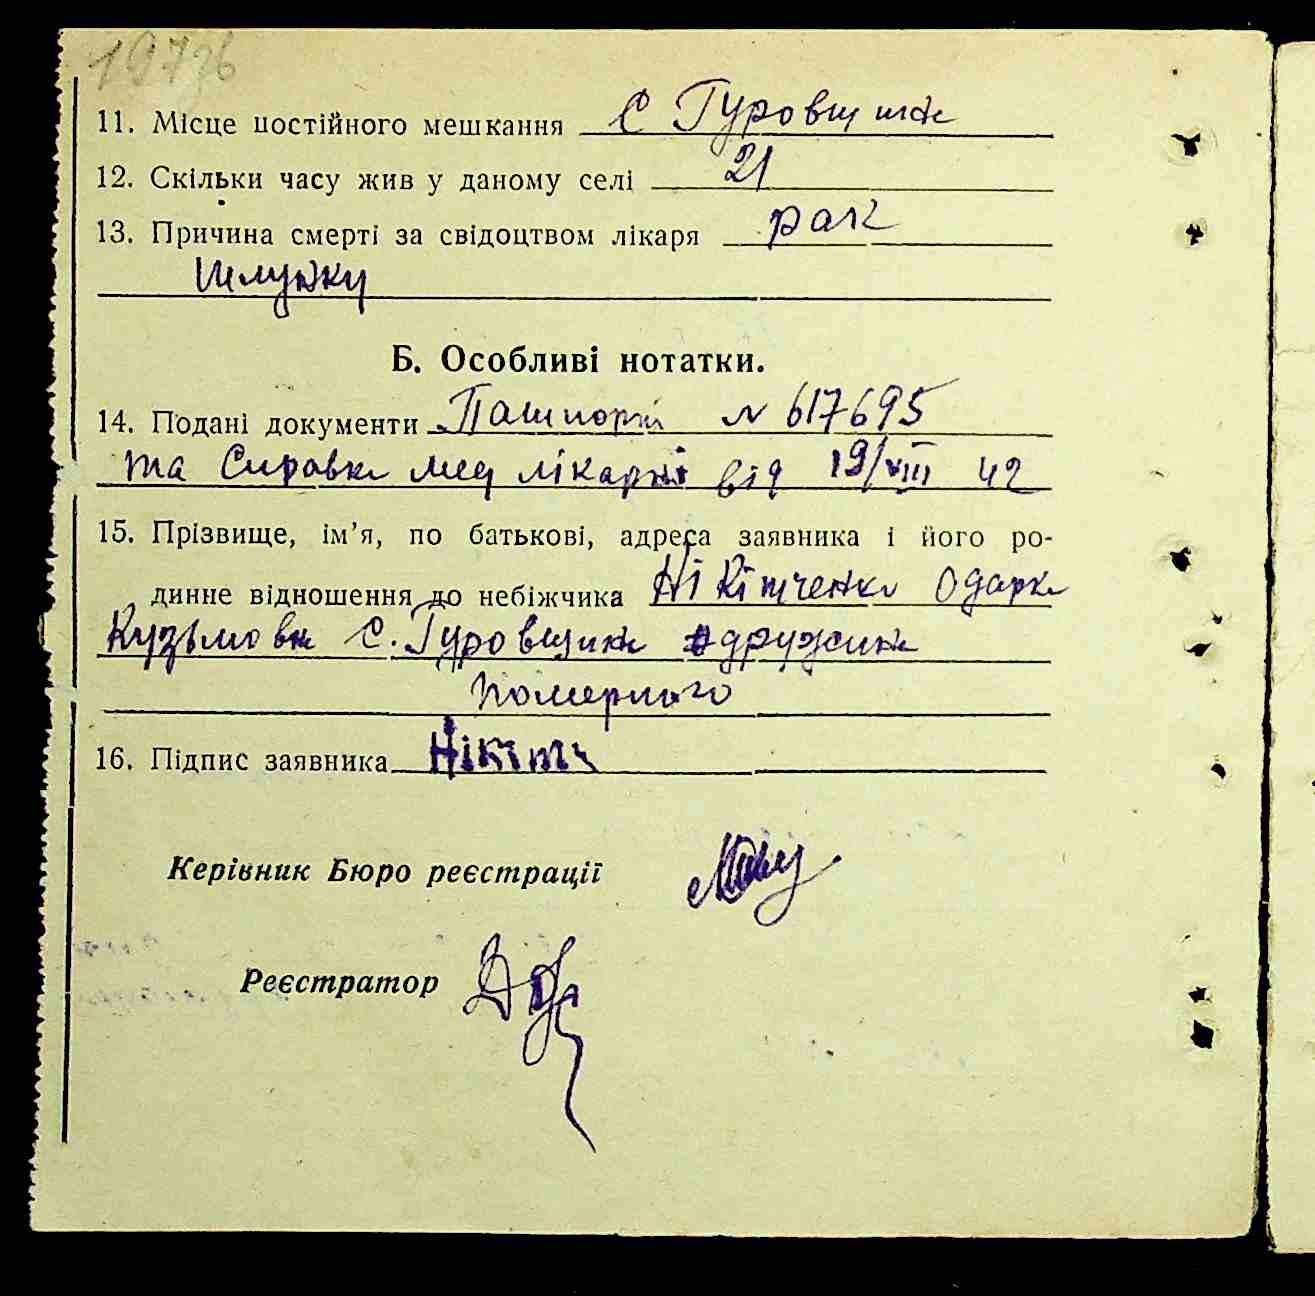 197зв
11. Місце постійного мешкання с Гуровщина
12. Скільки часу жив у даному селі 21
13. Причина смерті за свідоцтвом лікаря рак
шлунку
Б. Особливі нотатки.
14. Подані документи Пашпорт № 617695
та Справка мед лікарні від 19/VIII 42
15. Прізвище, ім’я, по батькові, адреса заявника і його ро-
динне відношення до небіжчика Нікітченко Одарка
Кузьмовна с. Гуровщина дружина
померлого
16. Підпис заявника Нікітч
Керівник Бюро реєстрації
Реєстратор